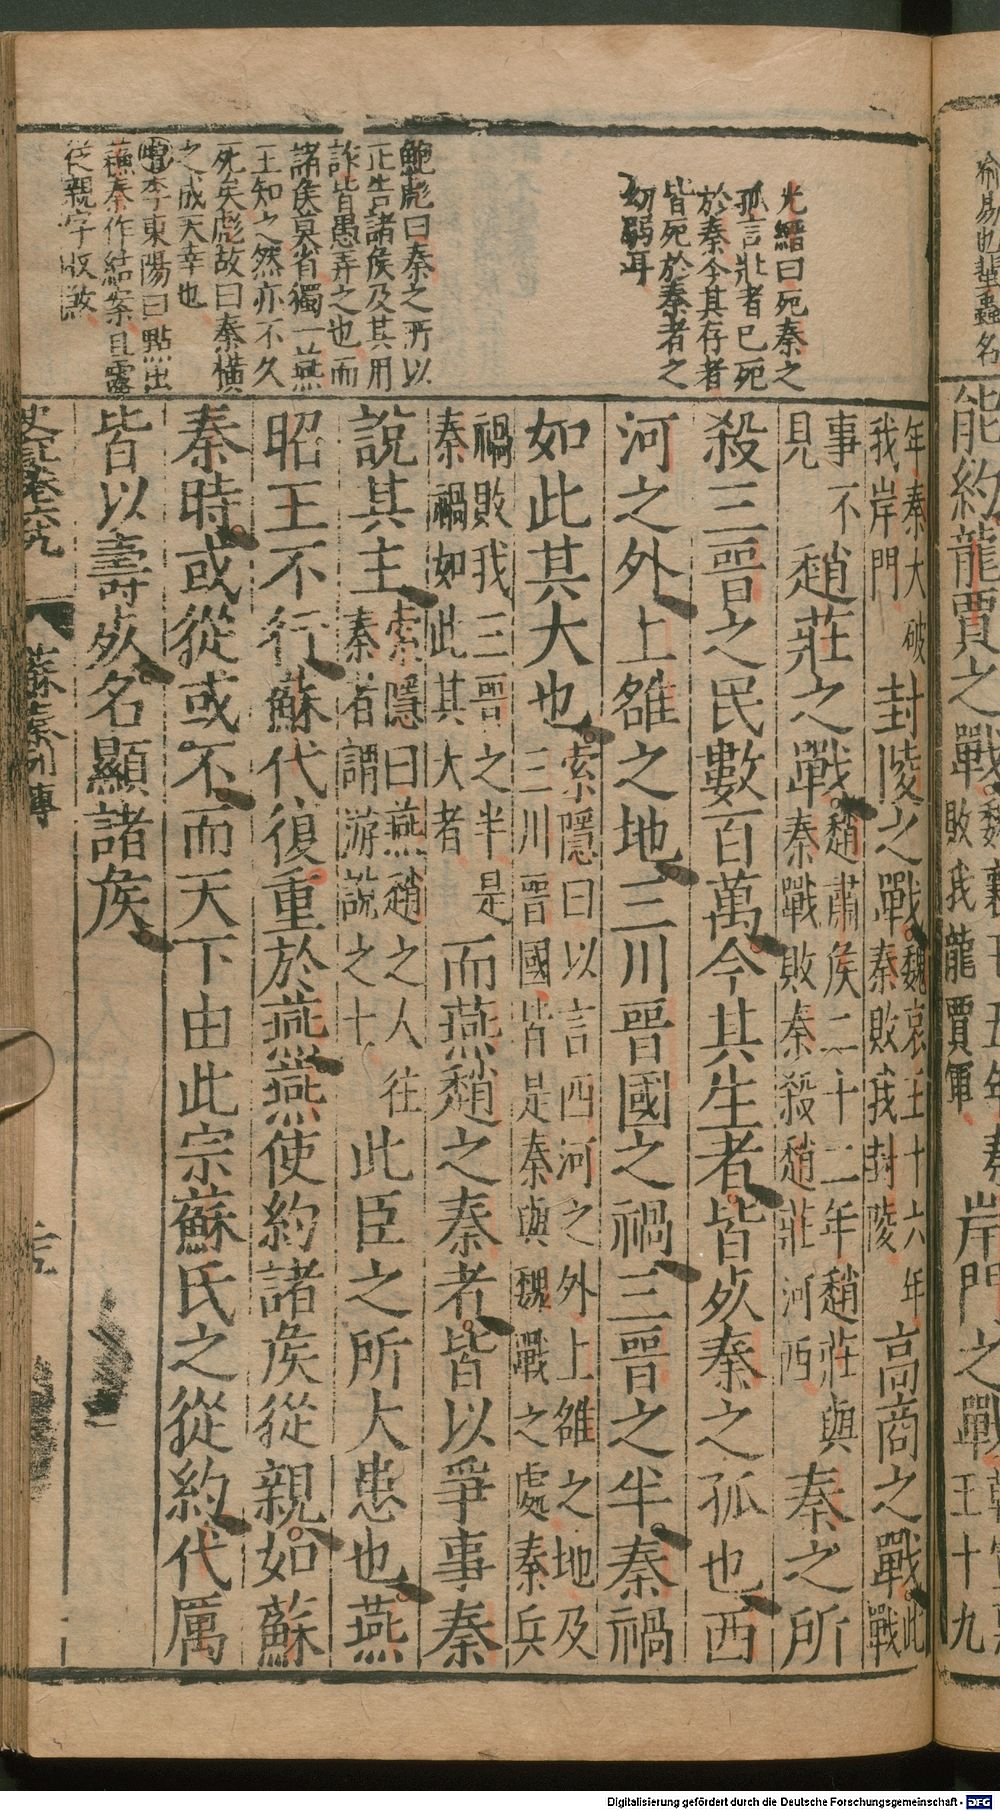 能約龍賈之戰魏襄王五年秦敗我龍賈軍岸門之戰
王十九
年秦大破我岸門封陵之戰魏哀王十六年秦敗我封陵高商之戰此戰
事不見趙莊之戰趙肅侯二十二年趙莊與秦戰敗秦殺趙莊河西秦之所
殺三晉之民數百萬今其生者皆死秦之孤也西
河之外上雒之地三川晉國之禍三晉之半秦禍
如此其大也索隱曰以言西河之外上雒之地及三川晉國皆是秦與魏戰之處秦兵
禍敗我三晉之半是秦禍如此其大者而燕趙之秦者皆以爭事秦
說其主索隱曰燕趙之人往秦者謂游說之士此臣之所大患也燕
昭王不行蘇代復重於燕燕使約諸侯從親如蘇
秦時或從或不而天下由此宗蘇氏之從約代厲
皆以壽死名顯諸侯
史記卷六九
蘇秦列傳
喻易也蜚蟲名
光縉曰死秦之
孤言壯者已死
於秦今其存者
皆死於秦者之
幼弱耳
鮑彪曰秦之所以
正告諸侯及其用
詐皆愚弄之也而
諸侯莫省獨一燕
王知之然亦不久
死矣彪故曰秦橫
之成天幸也
李東陽曰點出
蘇秦作結案且露
從親字收
Digitalisierung gefördert durch die Deutsche Forschungsgemeinschaft - DFG